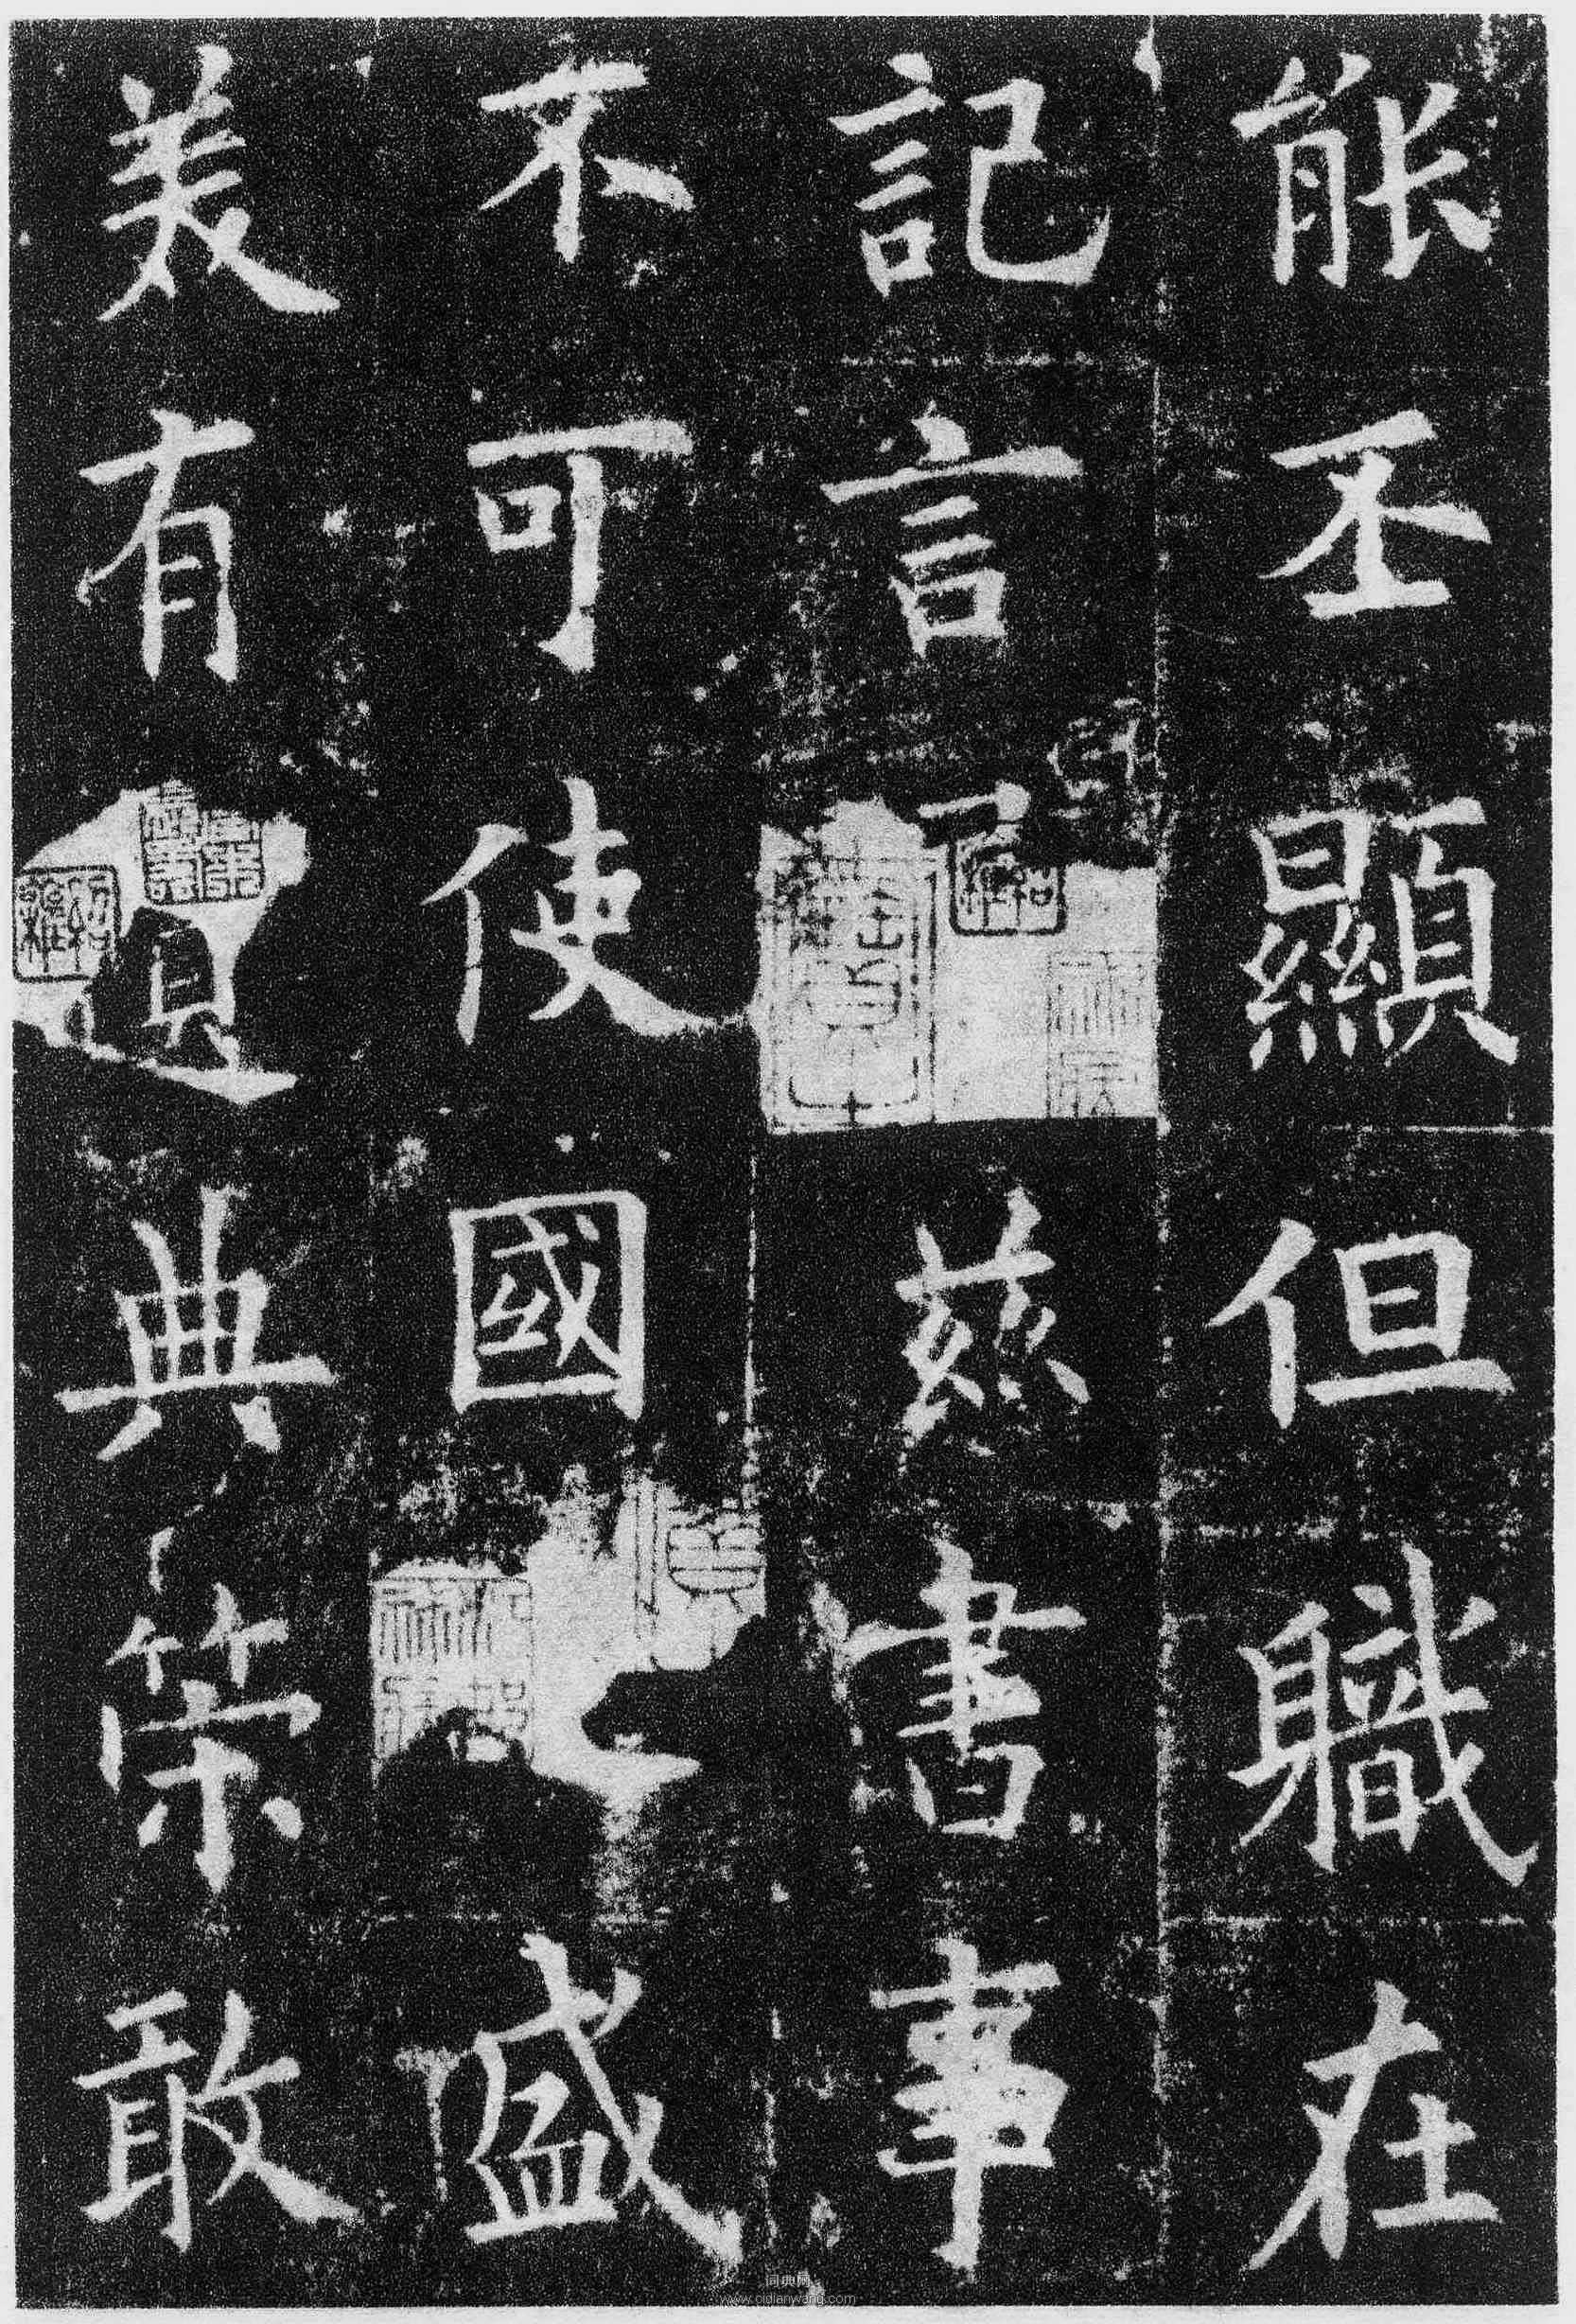 能丕顯但職在
記言兹書事
不可使國盛
美有遺典策敢
词典网
www.cidianwang.com